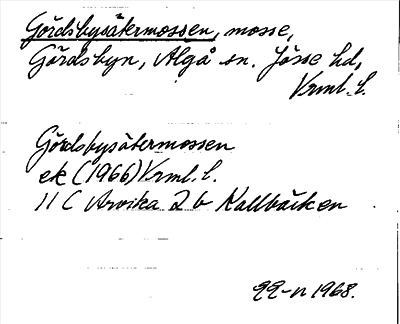 Gördsbysätermossen, mosse,
Gördsbyn, Älgå sn. Jösse hd,
Vrml. l.
Gördsbysätermossen
ek (1966) Vrml. l.
11 C Arvika 2 b Kallbäcken
22-n 1968.